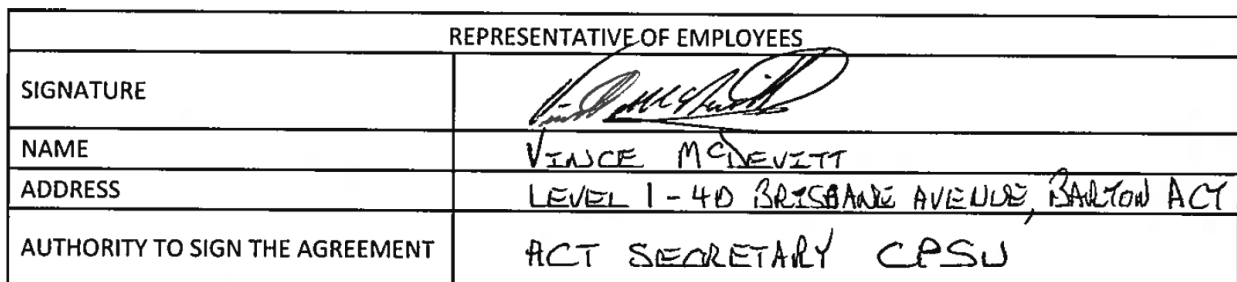 REPRESENTATIVE OF EMPLOYEES
SIGNATURE
NAME VINCE McDEVITT
ADDRESS LEVEL 1 - 40 BRISBANE AVENUE, BARTON ACT
AUTHORITY TO SIGN THE AGREEMENT ACT SECRETARY CPSU